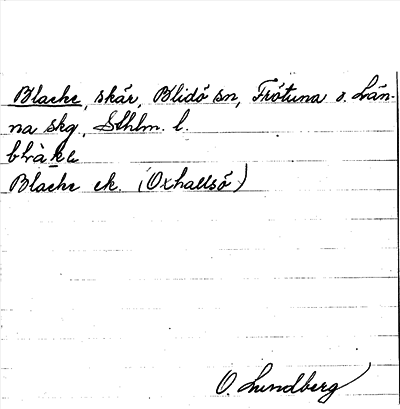 Blache, skär, Blidö sn, Frötuna o. Län-
na skg, Sthlm. l.
blàkc
Blache ek. (Oxhalsö)
O. Lundberg